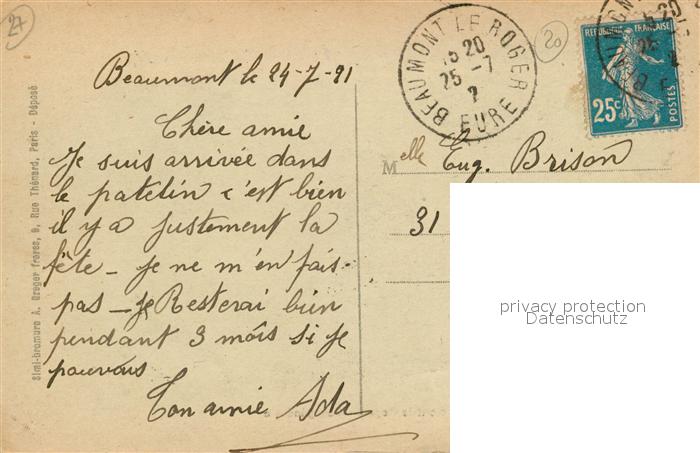 27
20
Simi-bromure A. Breger frères, 9, Rue Thénard, Paris - Déposé
Beaumont le 24-7-21
Chère amie
Je suis arrivée dans
le patelin c'est bien
il y a justement la
fête - je ne m'en fais
pas - je Resterai bien
pendant 3 mois si je
pouvais
Ton amie Ada
BEAUMONT LE ROGER
15 20
25 - 7
EURE
REPUBLIQUE FRANÇAISE
25c
POSTES
Melle Eug. Brison
31
privacy protection
Datenschutz